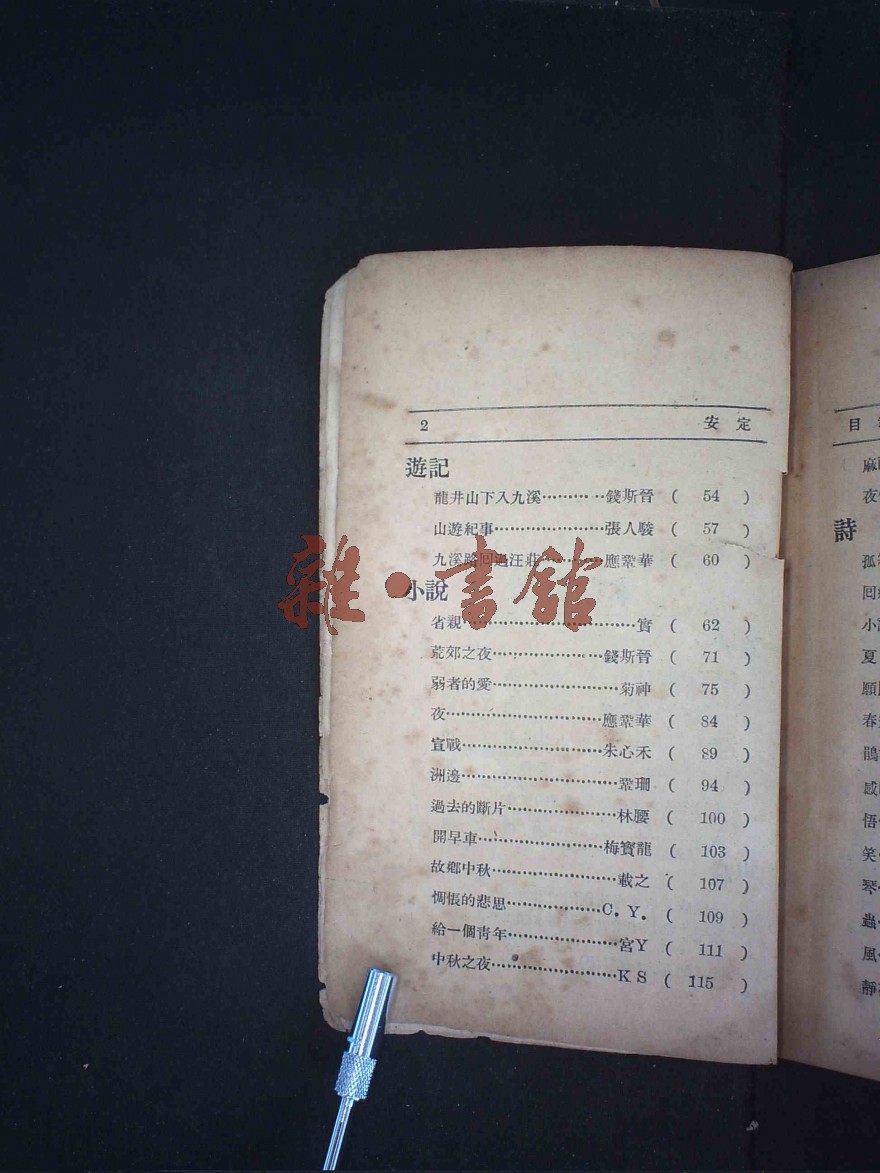 2 安定
遊記
龍井山下入九溪…………錢斯晉 ( 54 )
山遊紀事………………張人駿 ( 57 )
九溪路回過汪莊…………應鞏華 ( 60 )
小說
省親…………………………實 ( 62 )
荒郊之夜………………錢斯晉 ( 71 )
弱者的愛…………………菊神 ( 75 )
夜………………………應鞏華 ( 84 )
宣戰……………………朱心禾 ( 89 )
洲邊………………………鞏珊 ( 94 )
過去的斷片………………林腰 ( 100 )
開早車…………………梅寶龍 ( 103 )
故鄉中秋…………………載之 ( 107 )
惆悵的悲思……………C. Y. ( 109 )
給一個靑年………………宮Y ( 111 )
中秋之夜…………………K S ( 115 )
雜·書館
目
夜
詩
孤
回
小
夏
願
春
感
悟
笑
琴
蟲
風
靜